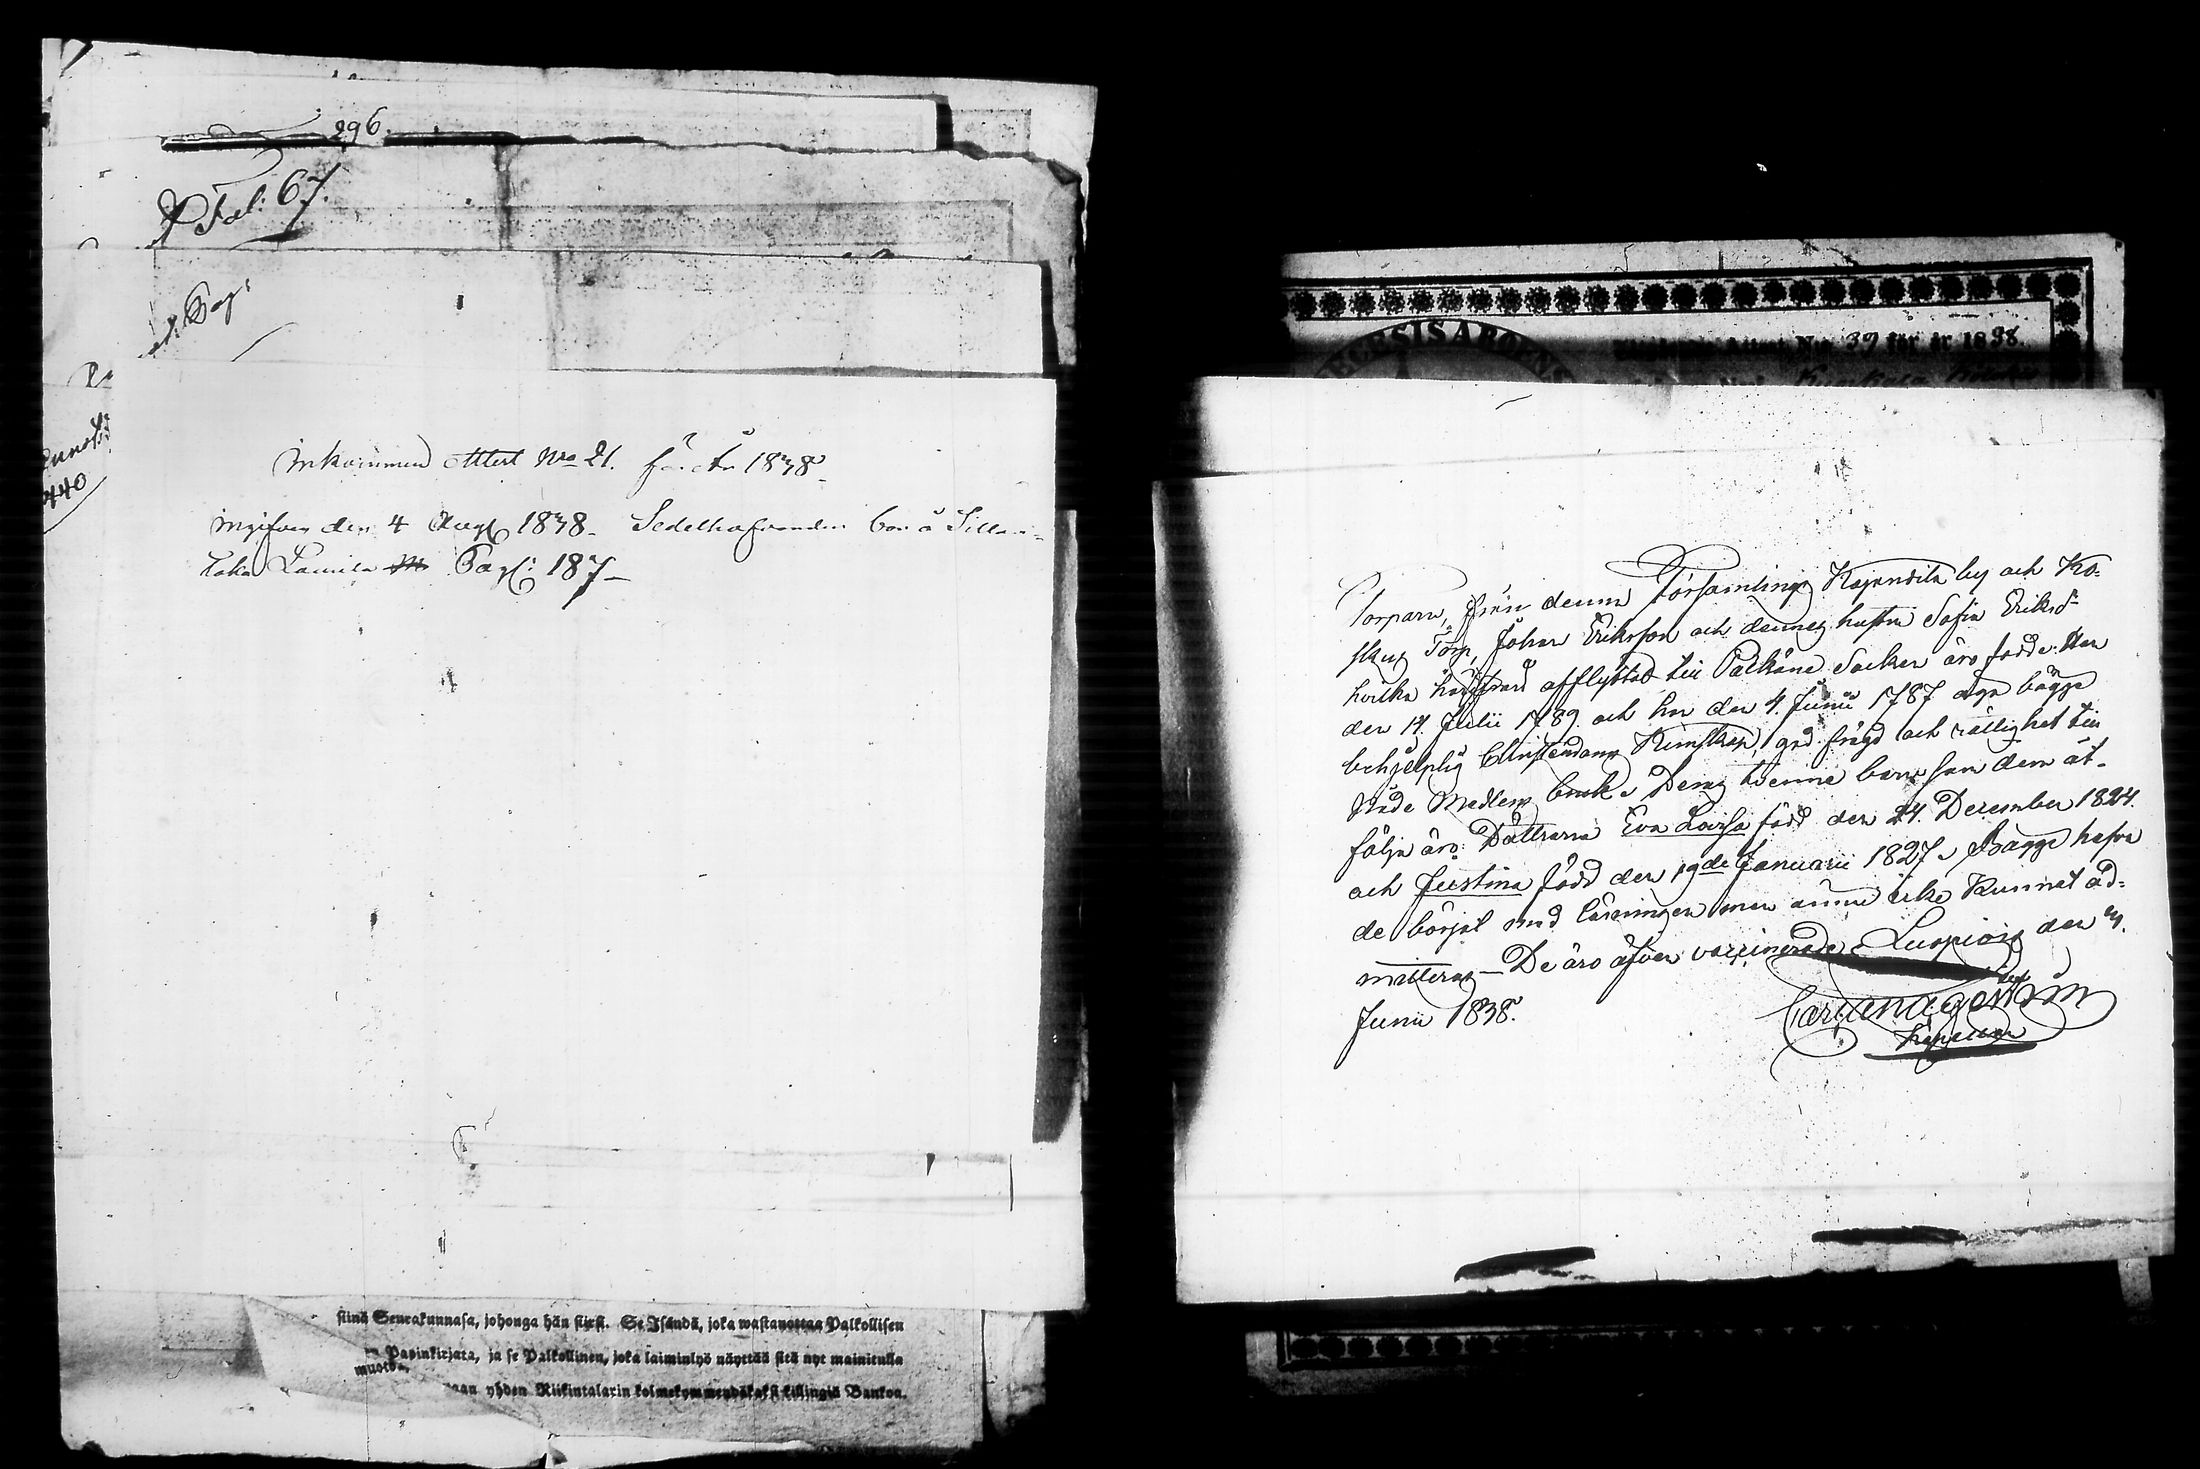 296.
Pal: 67.
Pag:
440
Inkommen Attest No 21. för år 1838
ingifven den 4 Aug 1838. Sedelhafvanden bor å Sillan-
taka Pag: 187
stinä Seurakunnasa, johonga hän siirst. Se Isändä, joka wastanottaa Palkollisen
Papinkirjata, ja se Palkollinen, joka laiminlyö näyttää sitä nyt mainitulla
muotoa,
yhden Riikintalarin kolmekymmendäkaksi killingiä Bankoa.
ECESIS ABOENS
Attest No 39 för år 1838.
Torparn, från denna Församling Kajandila by och Ko-
skug Torp, Johan Eriksson och dennes hustru Sofia Eriksd-
hvilka härifrån afflyttat till Pälkäne Socken äro födde: Han
den 14 Julii 1789 och hon den 4 Junii 1787 äga bägge
behjelplig Christendoms Kunskap, god frägd och rättighet till
Deras tvenne barn som dem åt-
följa äro: Döttrarna Eva Lovisa född den 24. December 1824.
och Justina född den 19de Januarii 1827. Bägge hafva
de börjat med läsningen men ännu icke kunnat ad-
mitteras — De äro äfven vaccinerade. Luopiois den
Junii 1838.
Carl
Kapellan